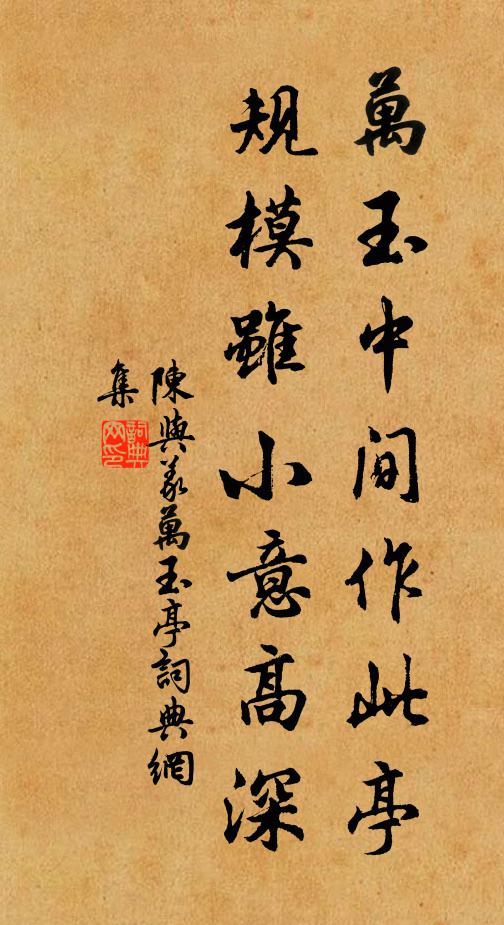 萬玉中间作此亭
規模雖小意高深
陳與義萬玉亭詞典網
集
詞典网印